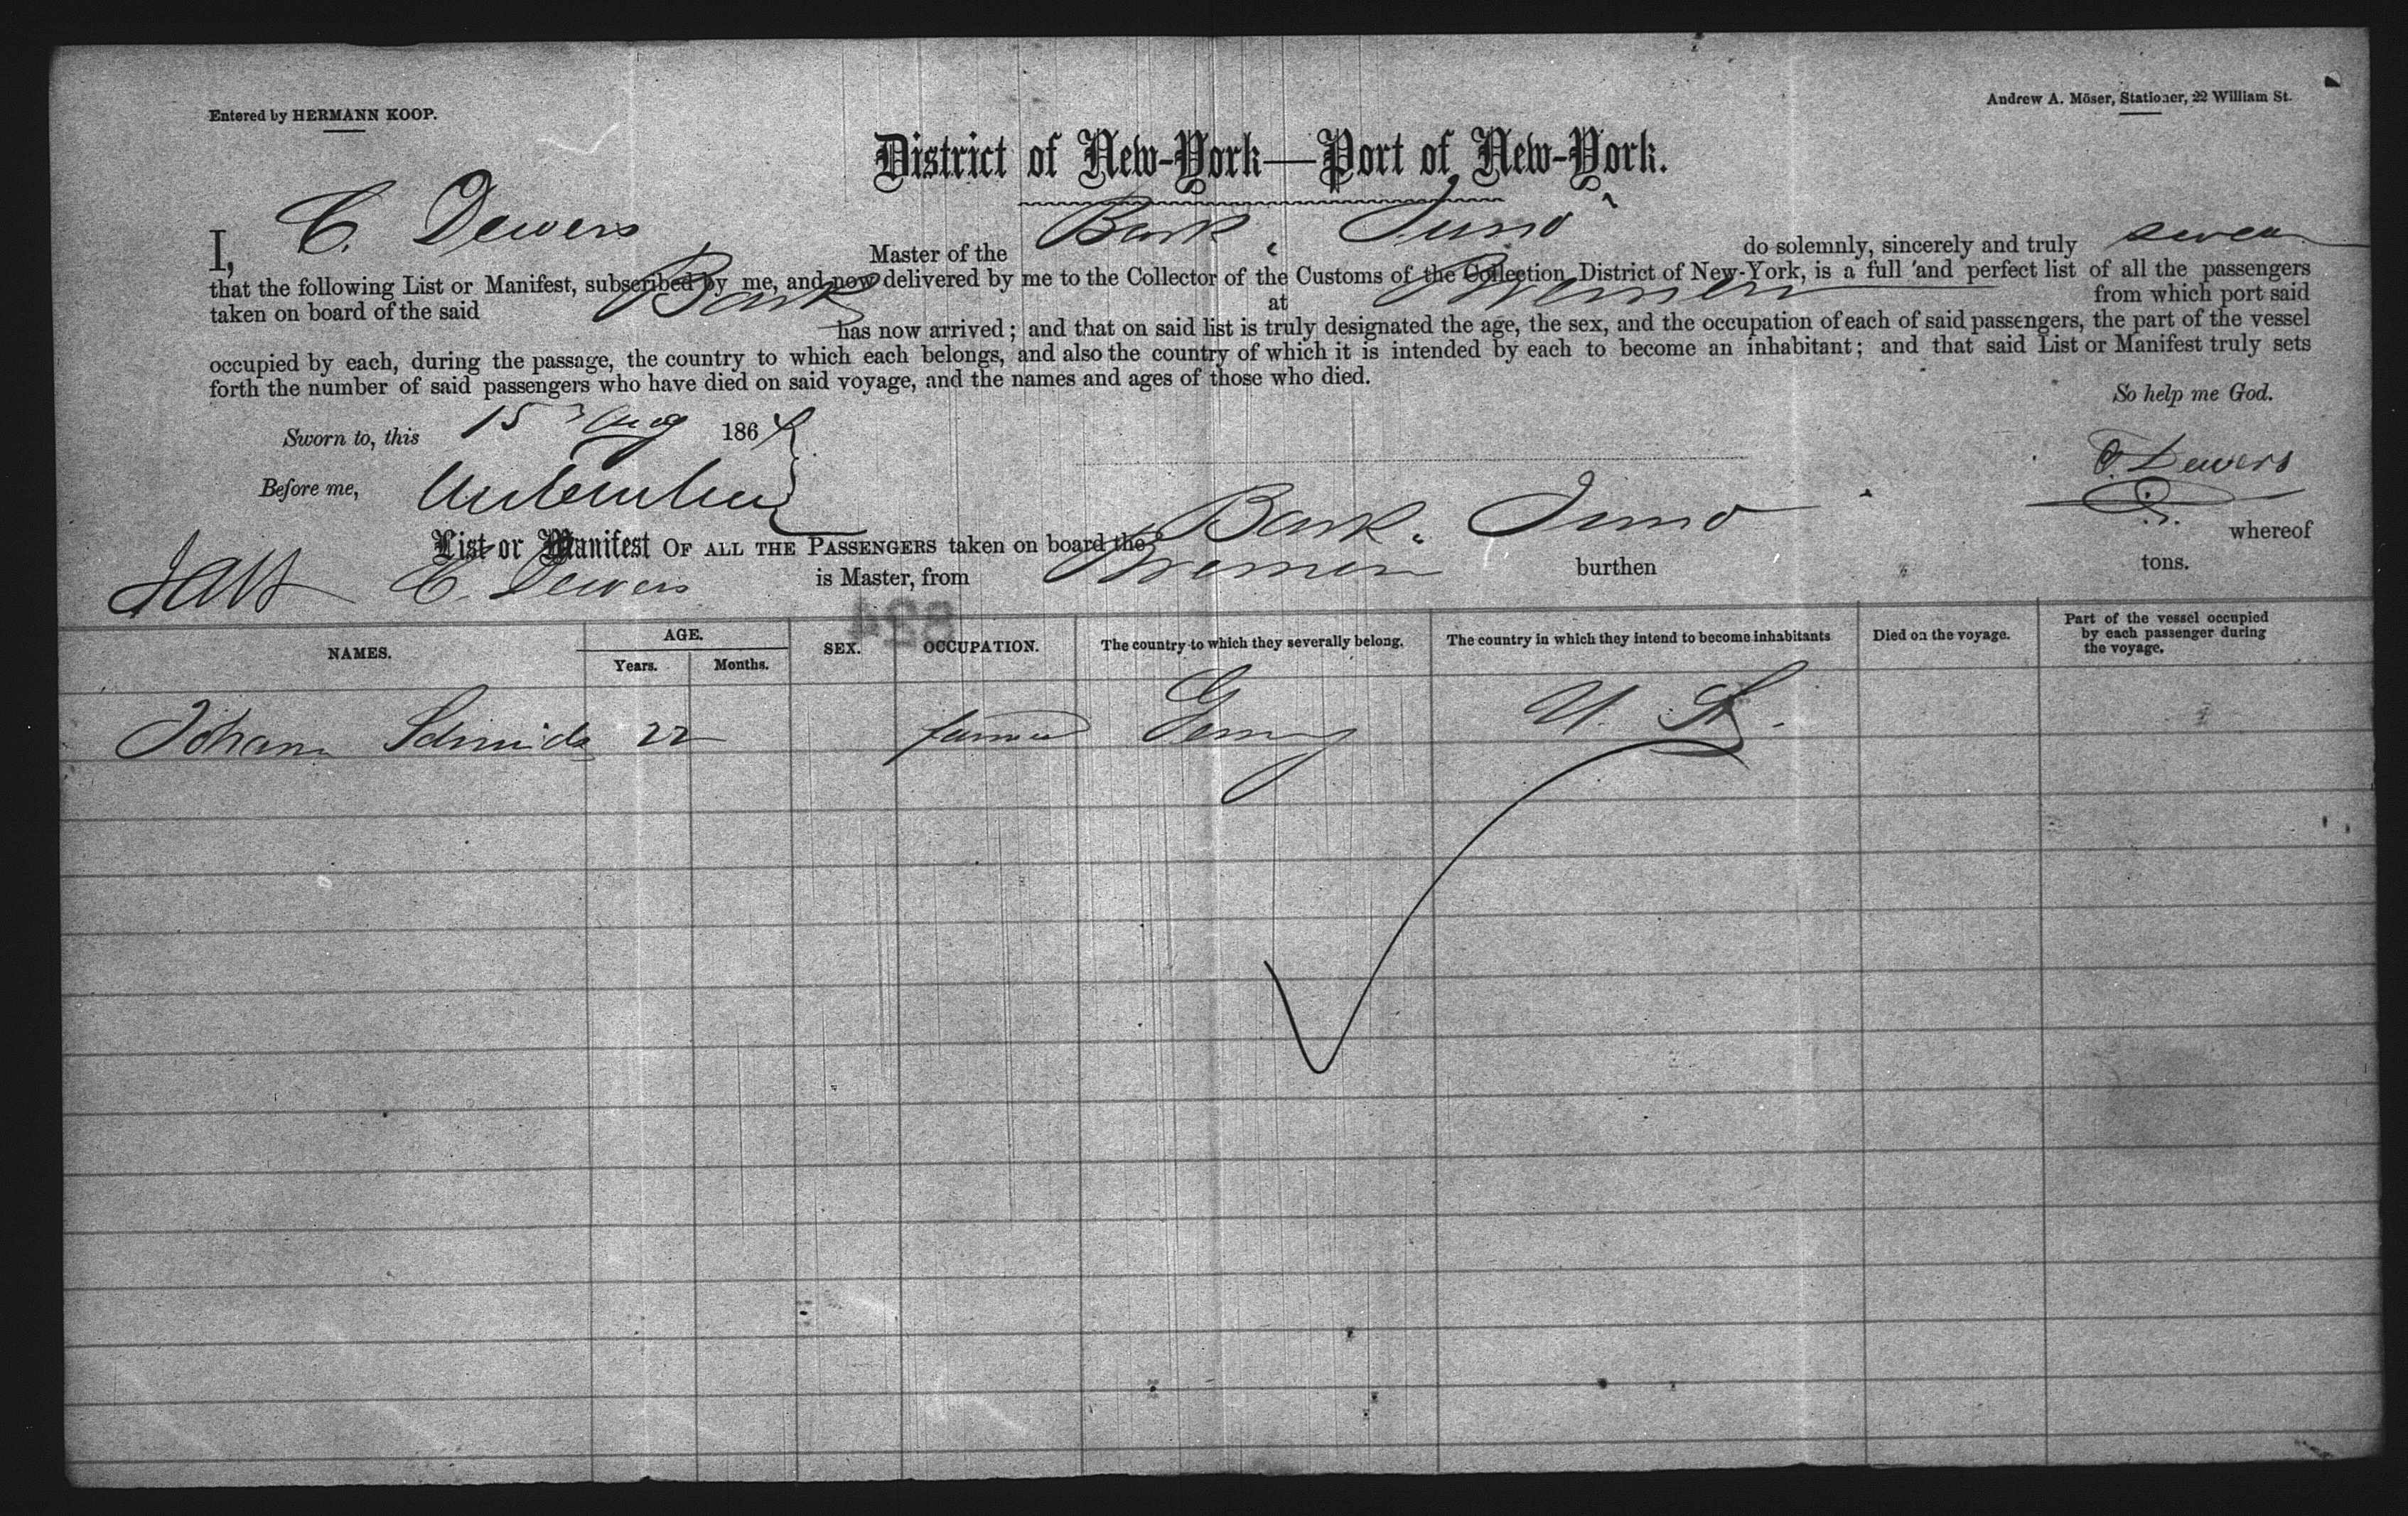 Entered by HERMANN KOOP.
Andrew A. Möser, Stationer, 22 William St.
District of New-York—Port of New-York.
I, C. Dewers Master of the Bark, Juno do solemnly, sincerely and truly swear
that the following List or Manifest, subscribed by me, and now delivered by me to the Collector of the Customs of the Collection District of New-York, is a full and perfect list of all the passengers
taken on board of the said Bark at Bremen from which port said
has now arrived; and that on said list is truly designated the age, the sex, and the occupation of each of said passengers, the part of the vessel
occupied by each, during the passage, the country to which each belongs, and also the country of which it is intended by each to become an inhabitant; and that said List or Manifest truly sets
forth the number of said passengers who have died on said voyage, and the names and ages of those who died.
So help me God.
Sworn to, this 15 Aug 186
C Dewers
Before me,
List or Manifest OF ALL THE PASSENGERS taken on board the Bark. Juno whereof
C. Dewers is Master, from Bremen burthen tons.
NAMES.
AGE.
Years.
Months.
SEX.
OCCUPATION.
The country to which they severally belong.
The country in which they intend to become inhabitants
Died on the voyage.
Part of the vessel occupied
by each passenger during
the voyage.
Johann 22 farmer Germy U. S.